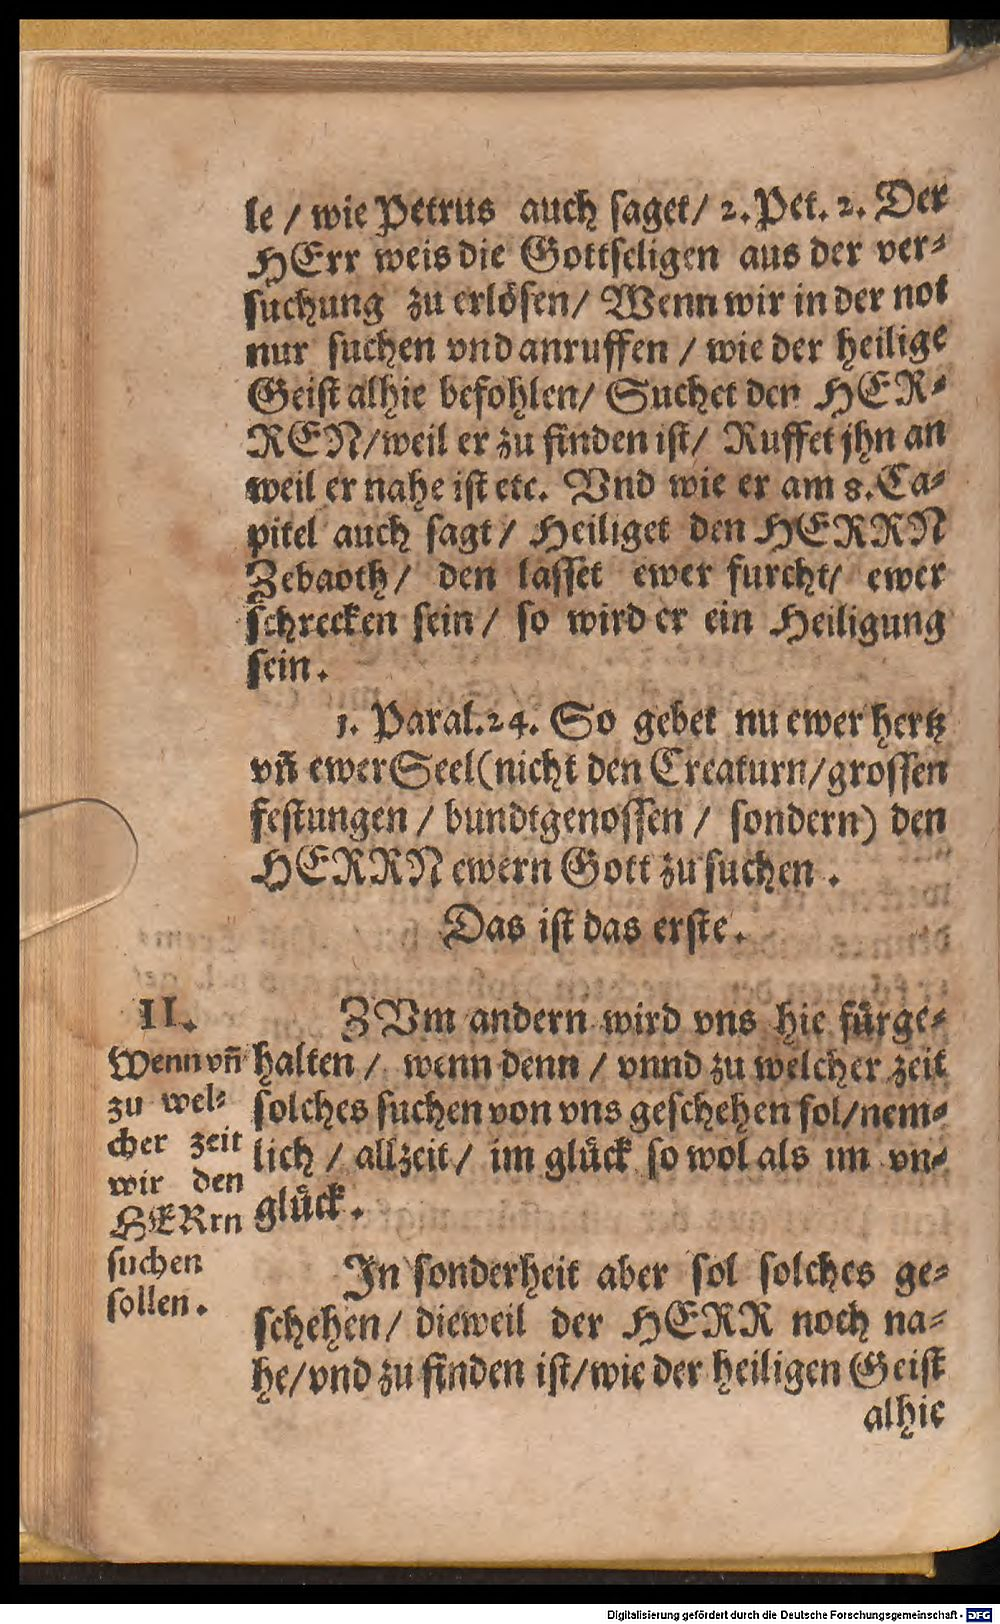 le / wie Petrus auch saget/ 2. Pet. 2. Der
HErr weis die Gottseligen aus der ver-
suchung zu erlösen/ Wenn wir in der not
nur suchen vnd anruffen / wie der heilige
Geist alhie befohlen/ Suchet den HER-
REN/weil er zu finden ist/ Ruffet jhn an
weil er nahe ist etc. Vnd wie er am 8. Ca-
pitel auch sagt / Heiliget den HERRN
Zebaoth/ den lasset ewer furcht/ ewer
schrecken sein / so wird er ein Heiligung
sein.
1. Paral. 24. So gebet nu ewer hertz
vñ ewer Seel (nicht den Creaturn/grossen
festungen / bundtgenossen / sondern) den
HERRN ewern Gott zu suchen.
Das ist das erste.
II.
Wenn vñ
zu wel-
cher zeit
wir den
HERrn
suchen
sollen.
ZVm andern wird vns hie fürge-
halten / wenn denn / vnnd zu welcher zeit
solches suchen von vns geschehen sol/nem-
lich / allzeit / im glück so wol als im vn-
glück.
In sonderheit aber sol solches ge-
schehen/ dieweil der HERR noch na-
he/vnd zu finden ist/wie der heiligen Geist
alhie
Digitalisierung gefördert durch die Deutsche Forschungsgemeinschaft - DFG